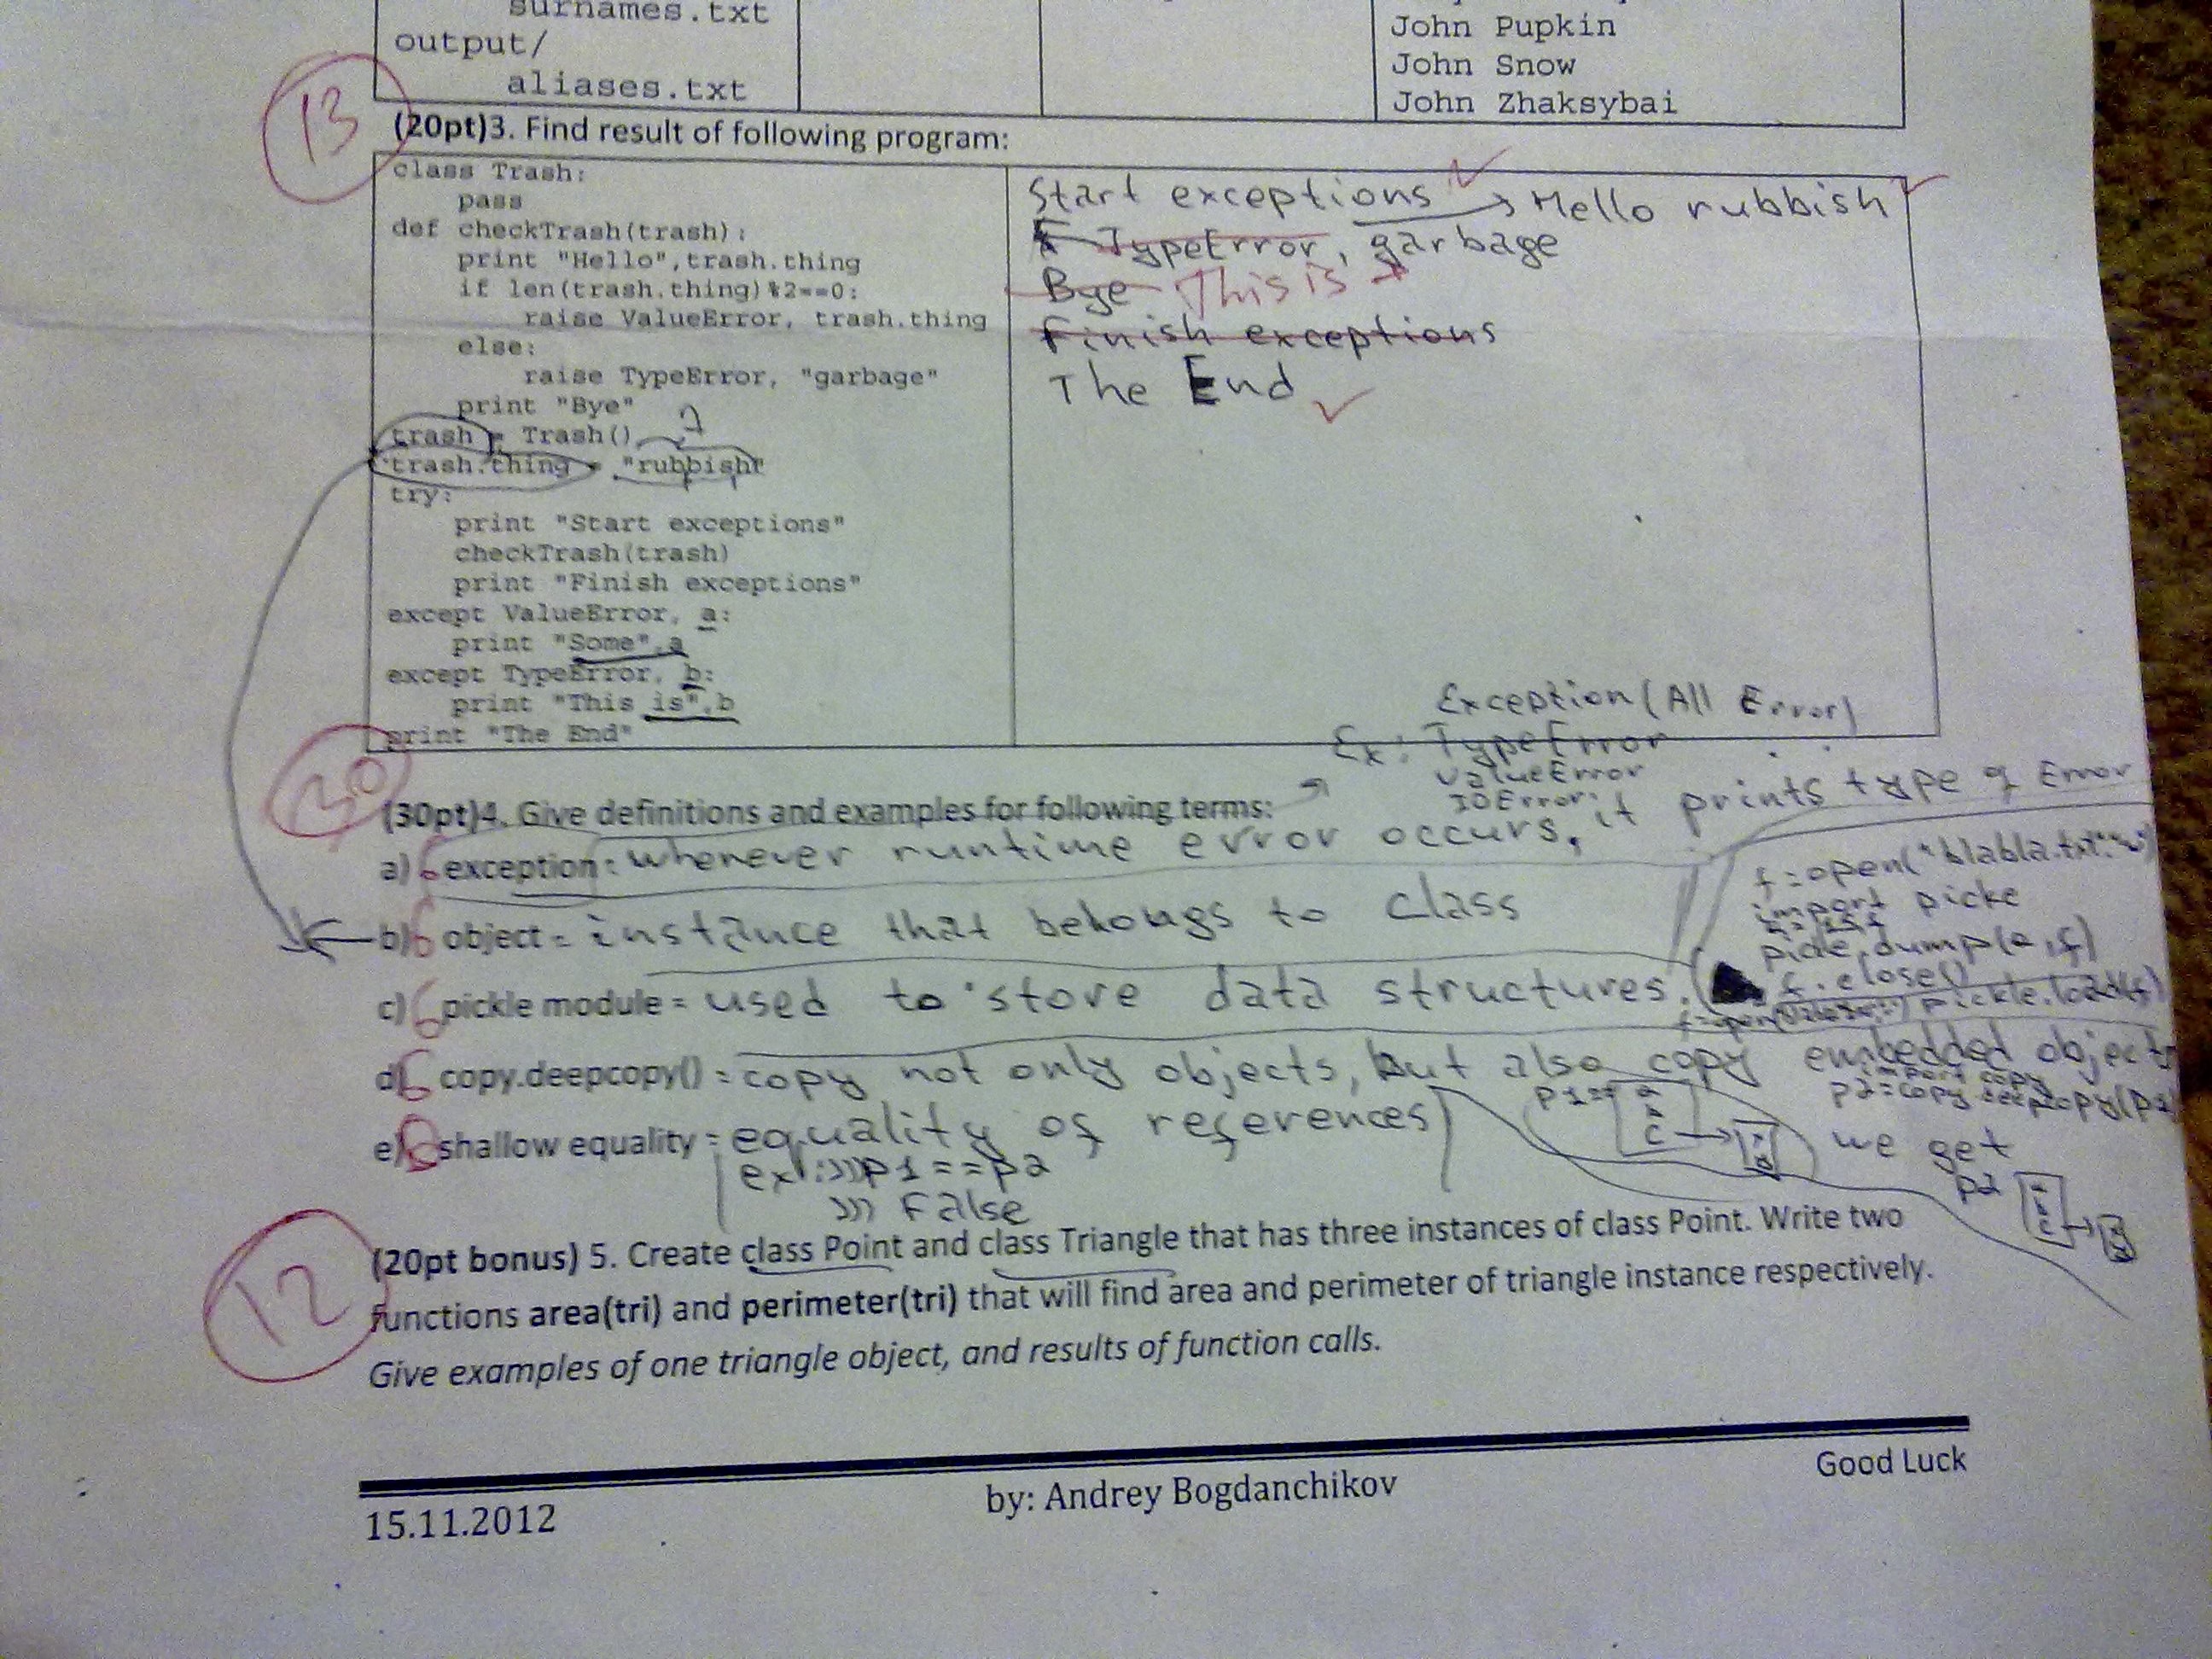 surnames.txt
output/
aliases.txt
John Pupkin
John Snow
John Zhaksybai
13
(20pt)3. Find result of following program:
class Trash:
pass
def checkTrash(trash):
print "Hello",trash.thing
if len(trash.thing)%2==0:
raise ValueError, trash.thing
else:
raise TypeError, "garbage"
print "Bye"
trash = Trash()
7
trash.thing = "rubbish"
try:
print "Start exceptions"
checkTrash(trash)
print "Finish exceptions"
except ValueError, a:
print "Some",a
except TypeError, b:
print "This is",b
print "The End"
Start exceptions → Hello rubbish
TypeError, garbage
Bye This is
Finish exceptions
The End
Exception (All Error)
Ex: TypeError
ValueError
IOError
30
(30pt)4. Give definitions and examples for following terms:
a) 6 exception: whenever runtime error occurs, it prints type of Error
b) 6 object = instance that belongs to class
c) 6 pickle module = used to store data structures.
f=open("blabla.txt"
import picke
pickle.dump(a,f)
f.close()
pickle.load(f)
d) 6 copy.deepcopy() = copy not only objects, but also copy embedded objects
import copy
p2=copy.deepcopy(p1)
p1=
we get
p2
e) 6 shallow equality = equality of references
ex: >>>p1==p2
>>> False
12
(20pt bonus) 5. Create class Point and class Triangle that has three instances of class Point. Write two
functions area(tri) and perimeter(tri) that will find area and perimeter of triangle instance respectively.
Give examples of one triangle object, and results of function calls.
15.11.2012
by: Andrey Bogdanchikov
Good Luck